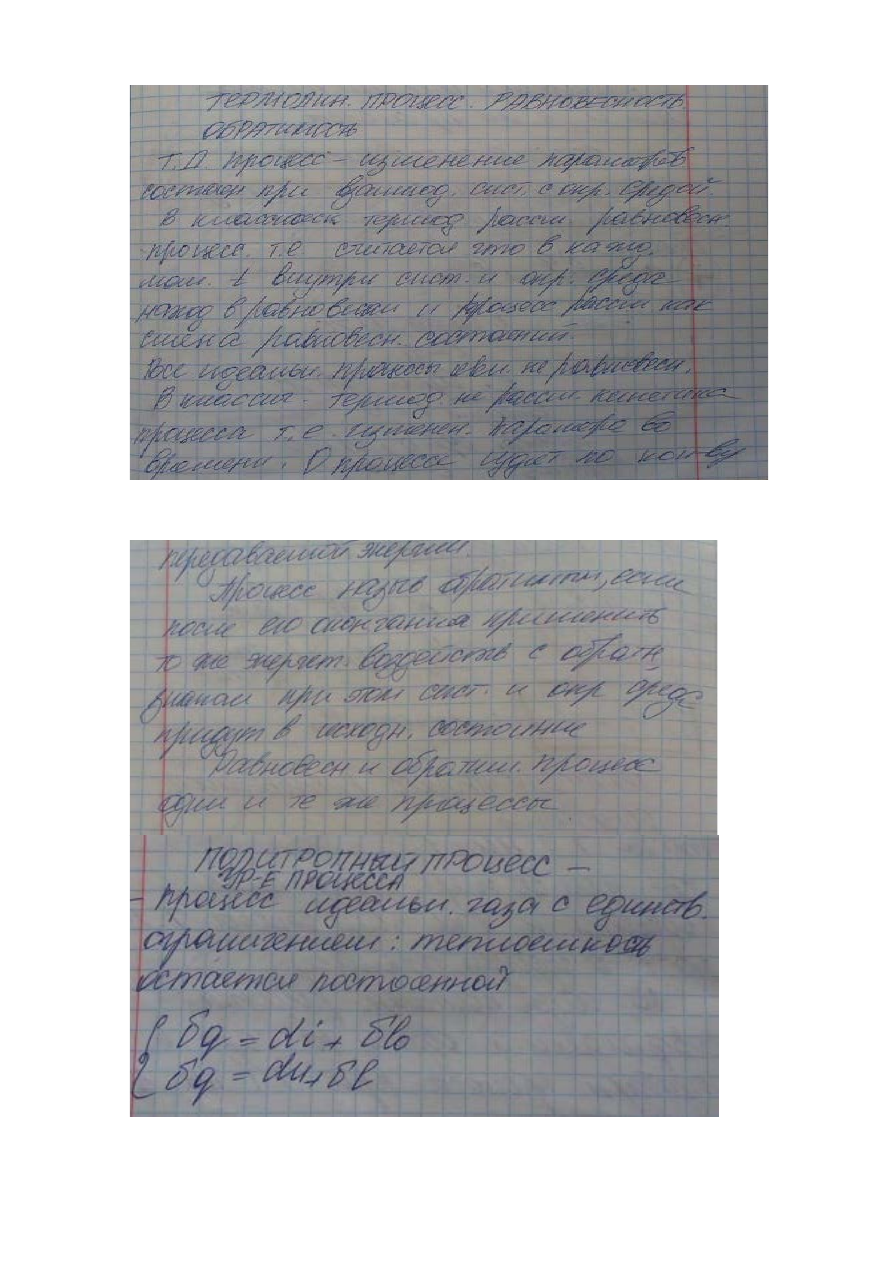 ТЕРМОДИН. ПРОЦЕСС. РАВНОВЕСНОСТЬ
ОБРАТИМОСТЬ
Т.Д процесс – изменение параметров
состоян при взаимод. сист. с окр. средой.
В классическ термод рассм. равновесн.
процесс. т.е считается что в кажд.
мом. t внутри сист. и окр. среда
наход в равновесии и процесс рассм как
смена равновесн. состояний.
Все идеальн. процессы явл. не равновесн.
В классич. термод. не рассм. кинетика
процесса т.е. изменен. параметра во
времени. О процессе судят по кол-ву
передаваемой энергии.
Процесс назыв обратимым, если
после его окончания применить
то же энергет. воздейств с обратн.
знаком при этом сист. и окр среда
придут в исходн. состояние
Равновесн и обратим. процесс
одни и те же процессы
ПОЛИТРОПНЫЙ ПРОЦЕСС –
УР-Е ПРОЦЕССА
– процесс идеальн. газа с единств.
ограничением: теплоемкость
остается постоенной
δq = di + δl₀
δq = du + δl